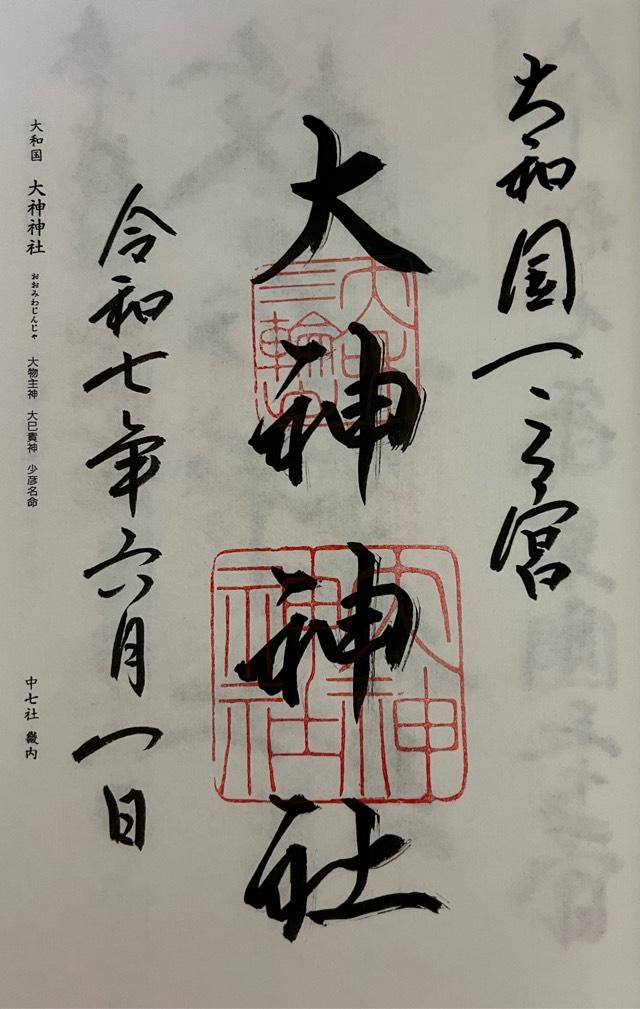 大和国一之宮
大神神社
令和七年六月一日
大和国 大神神社 おおみわじんじゃ 大物主神 大巳貴神 少彦名命
中七社 畿内
大神神社